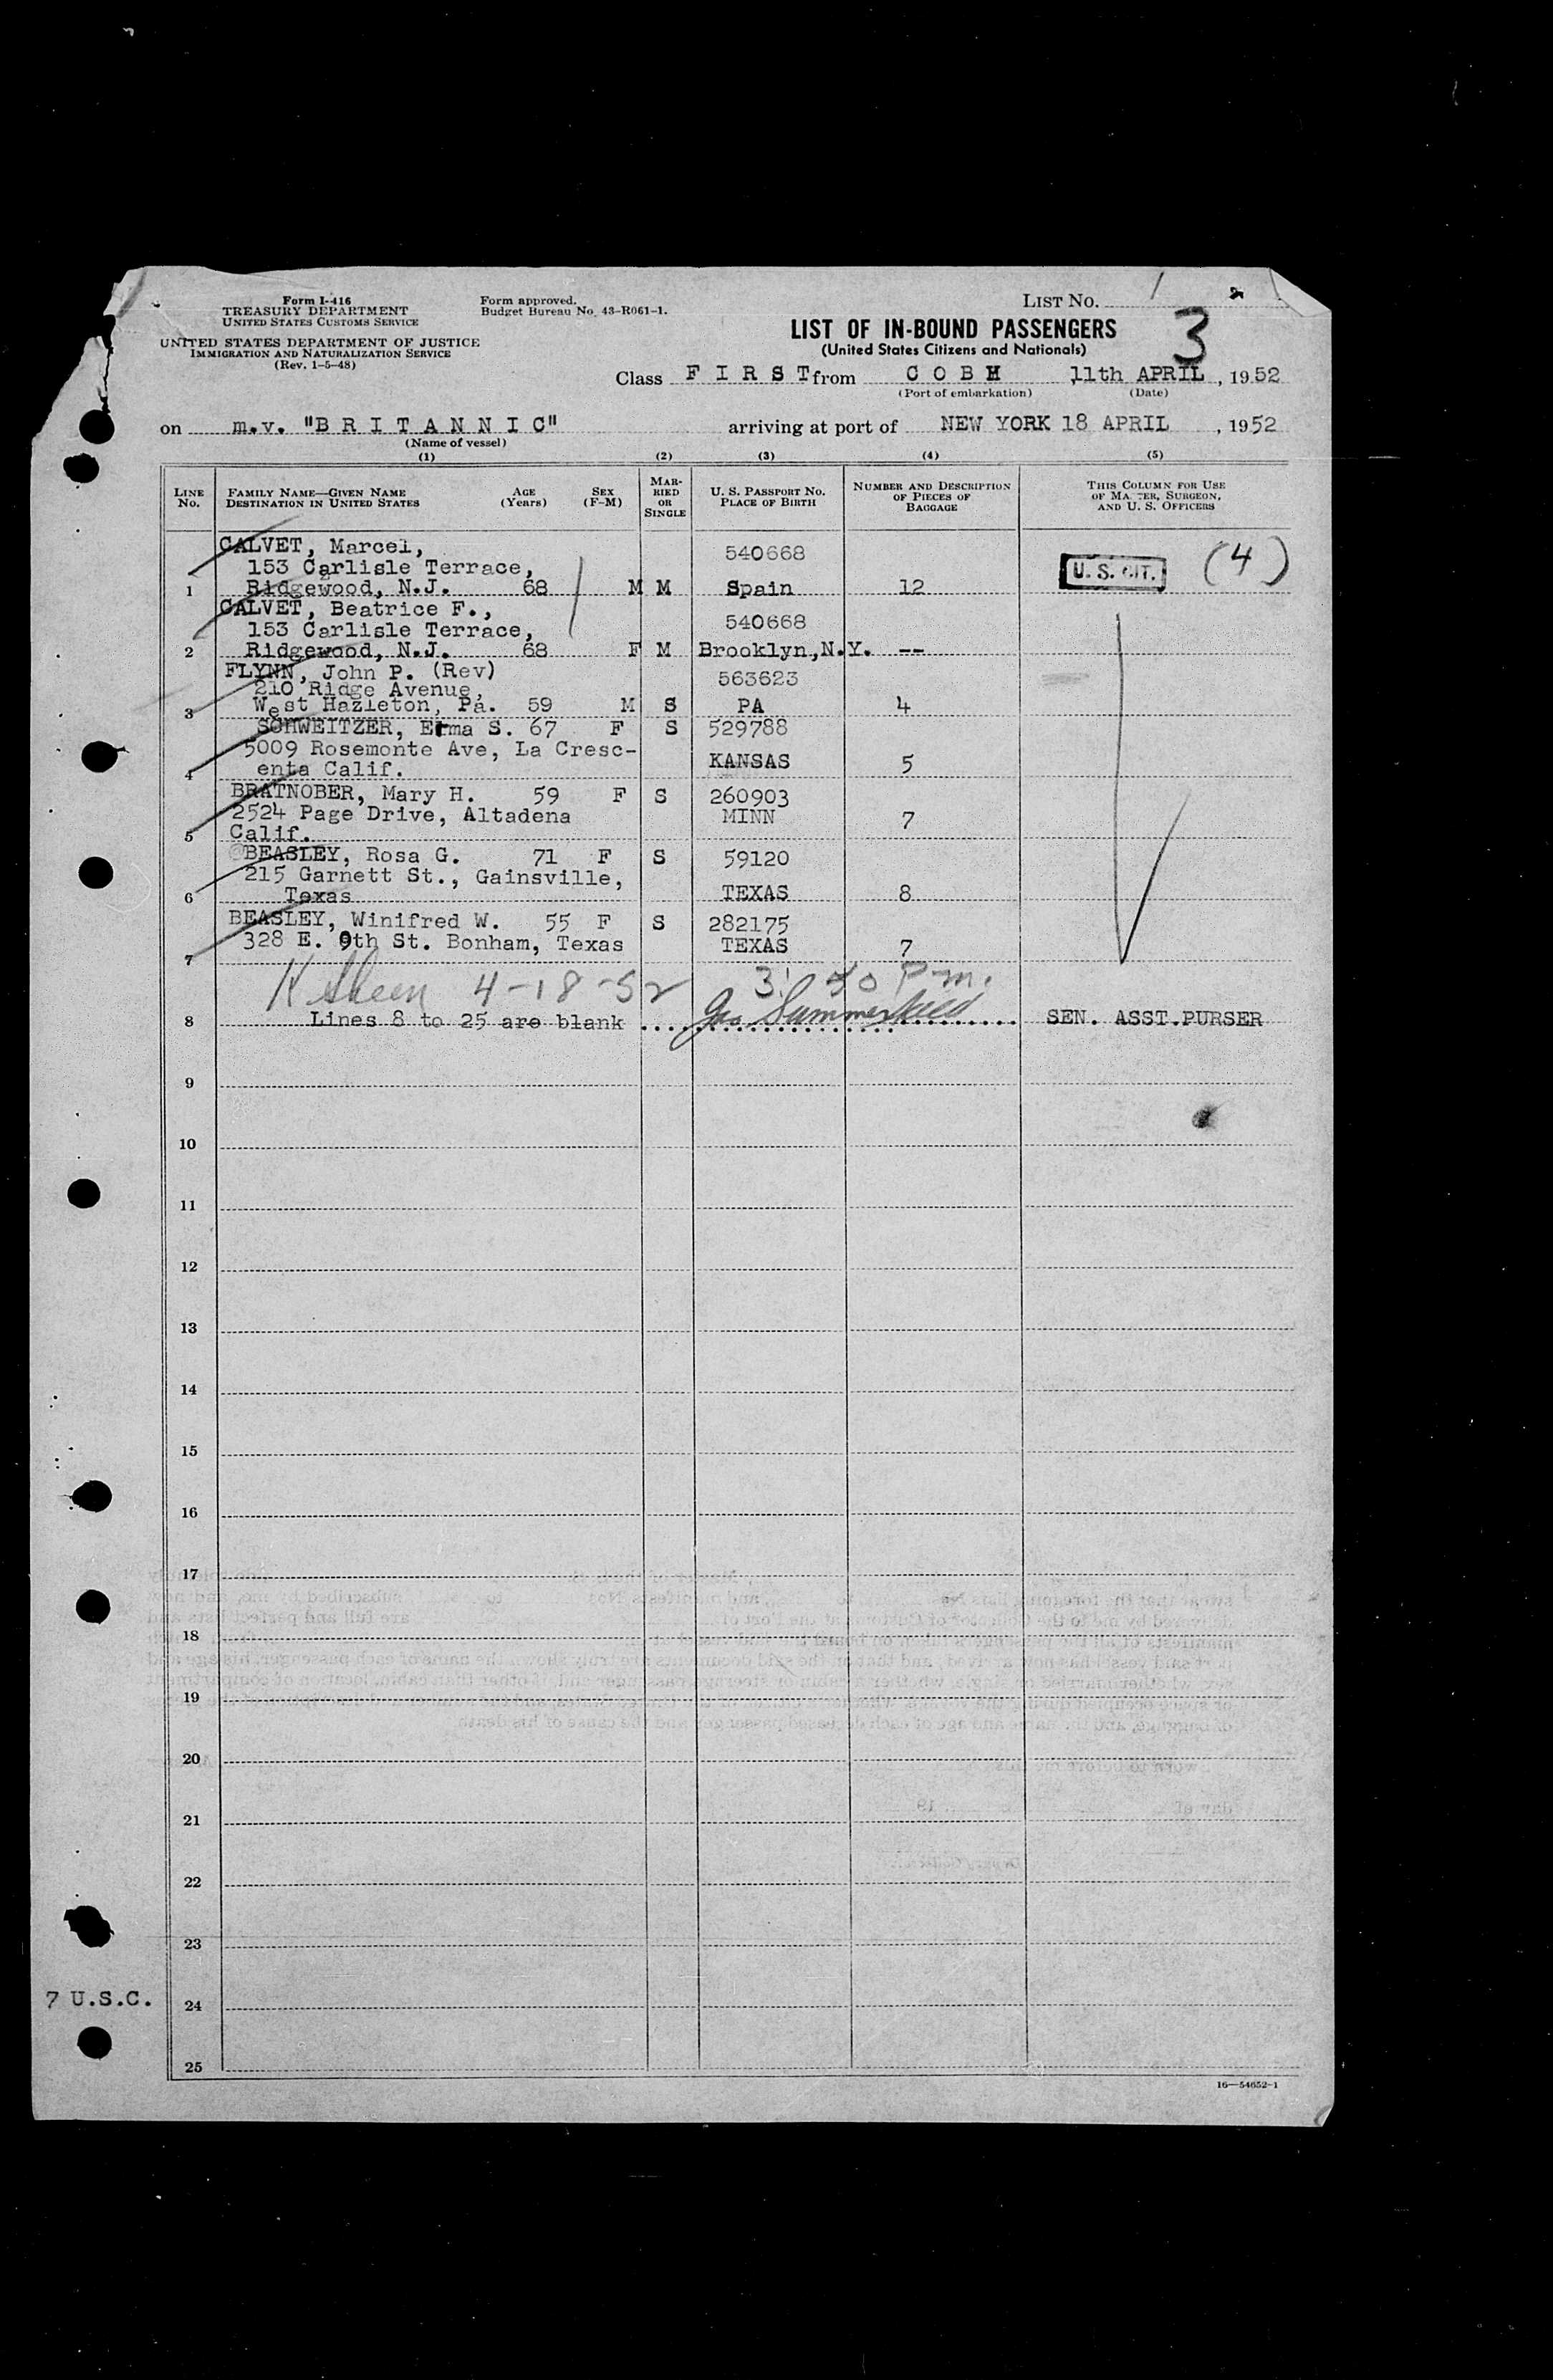 Form I-416
TREASURY DEPARTMENT
UNITED STATES CUSTOMS SERVICE
UNITED STATES DEPARTMENT OF JUSTICE
IMMIGRATION AND NATURALIZATION SERVICE
(Rev. 1-5-48)
Form approved.
Budget Bureau No. 43-R061-1.
LIST NO. 1
3
LIST OF IN-BOUND PASSENGERS
(United States Citizens and Nationals)
Class F I R S T from C O B H 11th APRIL, 1952
(Port of embarkation) (Date)
on m.v. "B R I T A N N I C" arriving at port of NEW YORK 18 APRIL, 1952
(Name of vessel)
(1) (2) (3) (4) (5)
LINE NO. FAMILY NAME—GIVEN NAME DESTINATION IN UNITED STATES AGE (Years) SEX (F-M) MARRIED OR SINGLE U. S. PASSPORT NO. PLACE OF BIRTH NUMBER AND DESCRIPTION OF PIECES OF BAGGAGE THIS COLUMN FOR USE OF MASTER, SURGEON, AND U. S. OFFICERS
CALVET, Marcel, 540668
153 Carlisle Terrace, U. S. CIT. (4)
1 Ridgewood, N.J. 68 M M Spain 12
CALVET, Beatrice F.,
153 Carlisle Terrace, 540668
2 Ridgewood, N.J. 68 F M Brooklyn,N.Y. --
FLYNN, John P. (Rev) 563623
210 Ridge Avenue,
3 West Hazleton, Pa. 59 M S PA 4
SCHWEITZER, Erma S. 67 F S 529788
5009 Rosemonte Ave, La Cresc-
4 enta Calif. KANSAS 5
BRATNOBER, Mary H. 59 F S 260903
2524 Page Drive, Altadena MINN 7
5 Calif.
BEASLEY, Rosa G. 71 F S 59120
215 Garnett St., Gainsville,
6 Texas TEXAS 8
BEASLEY, Winifred W. 55 F S 282175
328 E. 9th St. Bonham, Texas TEXAS 7
7
4-18-52 P.m.
8 Lines 8 to 25 are blank Summerfield SEN. ASST.PURSER
9
10
11
12
13
14
15
16
17
18
19
20
21
22
23
7 U.S.C. 24
25
16—54652-1